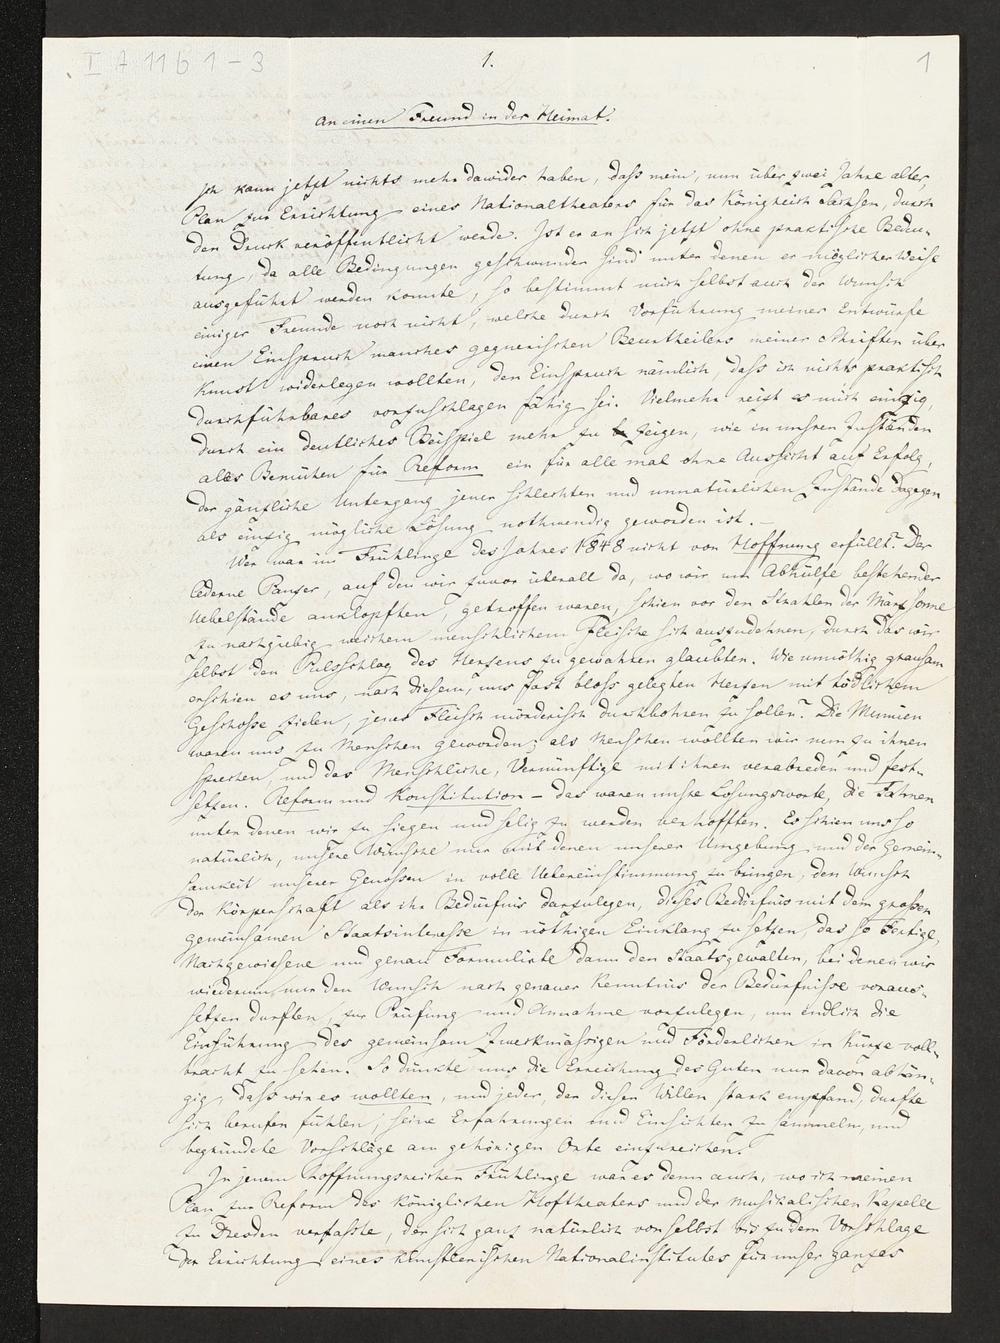 I A 11 b 1 – 3
1.
1
An einen Freund in der Heimat.
Ich kann jetzt nichts mehr dawider haben, dass mein, nun über zwei Jahre alter,
Plan zur Errichtung eines Nationaltheaters für das Königreich Sachsen, durch
den Druck veröffentlicht werde. Ist er an sich jetzt ohne praktische Bedeu-
tung, da alle Bedingungen geschwunden sind unter denen er möglicher Weise
ausgeführt werden konnte, so bestimmt mich selbst auch der Wunsch
einiger Freunde noch nicht, welche durch Vorführung meiner Entwürfe
einen Einspruch manches gegnerischen Beurtheilers meiner Schriften über
Kunst widerlegen wollten, den Einspruch nämlich, dass ich nichts praktisch
durchführbares vorzuschlagen fähig sei. Vielmehr reizt es mich einzig,
durch ein deutliches Beispiel mehr zu zeigen, wie in unsren Zuständen
alles Bemühen für Reform ein für alle mal ohne Aussicht auf Erfolg,
der gänzliche Untergang jener schlechten und unnatürlichen Zustände dagegen
als einzig mögliche Lösung nothwendig geworden ist. –
Wer war im Frühlinge des Jahres 1848 nicht von Hoffnung erfüllt? Der
lederne Panzer, auf den wir zuvor überall da, wo wir um Abhülfe bestehender
Uebelstände anklopften, getroffen waren, schien vor den Strahlen der Märzsonne
zu nachgiebig weichem menschlichem Fleische sich auszudehnen, durch das wir
selbst den Pulsschlag des Herzens zu gewahren glaubten. Wie unnöthig grausam
erschien es uns, nach diesem, uns fast bloss gelegten Herzen mit tödlichem
Geschosse zielen, jenes Fleisch mörderisch durchbohren zu sollen? Die Mumien
waren uns zu Menschen geworden; als Menschen wollten wir nun zu ihnen
sprechen, und das Menschliche, Vernünftige mit ihnen verabreden und fest-
setzen. Reform und Konstitution – das waren unsre Losungsworte, die Fahnen
unter denen wir zu siegen und selig zu werden verhofften. Es schien uns so
natürlich, unsere Wünsche nur mit denen unserer Umgebung und der Gemein-
samkeit unserer Genossen in volle Uebereinstimmung zu bringen, den Wunsch
der Körperschaft als ihr Bedürfnis darzulegen, dieses Bedürfnis mit dem grossen
gemeinsamen Staatsinteresse in nöthigen Einklang zu setzen, das so Fertige,
Nachgewiesene und genau Formulirte dann den Staatsgewalten, bei denen wir
wiederum nur den Wunsch nach genauer Kenntnis der Bedürfnisse voraus-
setzen durften, zur Prüfung und Annahme vorzulegen, um endlich die
Einführung des gemeinsam Zweckmässigen und Förderlichen in Kürze voll-
bracht zu sehen. So dünkte uns die Erreichung des Guten nur davon abhän-
gig, dass wir es wollten, und jeder, der diesen Willen stark empfand, durfte
sich berufen fühlen, seine Erfahrungen und Einsichten zu sammeln, und
begründete Vorschläge am gehörigen Orte einzureichen.
In jenem hoffnungsreichen Frühlinge war es denn auch, wo ich meinen
Plan zur Reform des königlichen Hoftheaters und der musikalischen Kapelle
zu Dresden verfasste, der sich ganz natürlich von selbst bis zu dem Vorschlage
der Errichtung eines künstlerischen Nationalinstitutes für unser ganzes